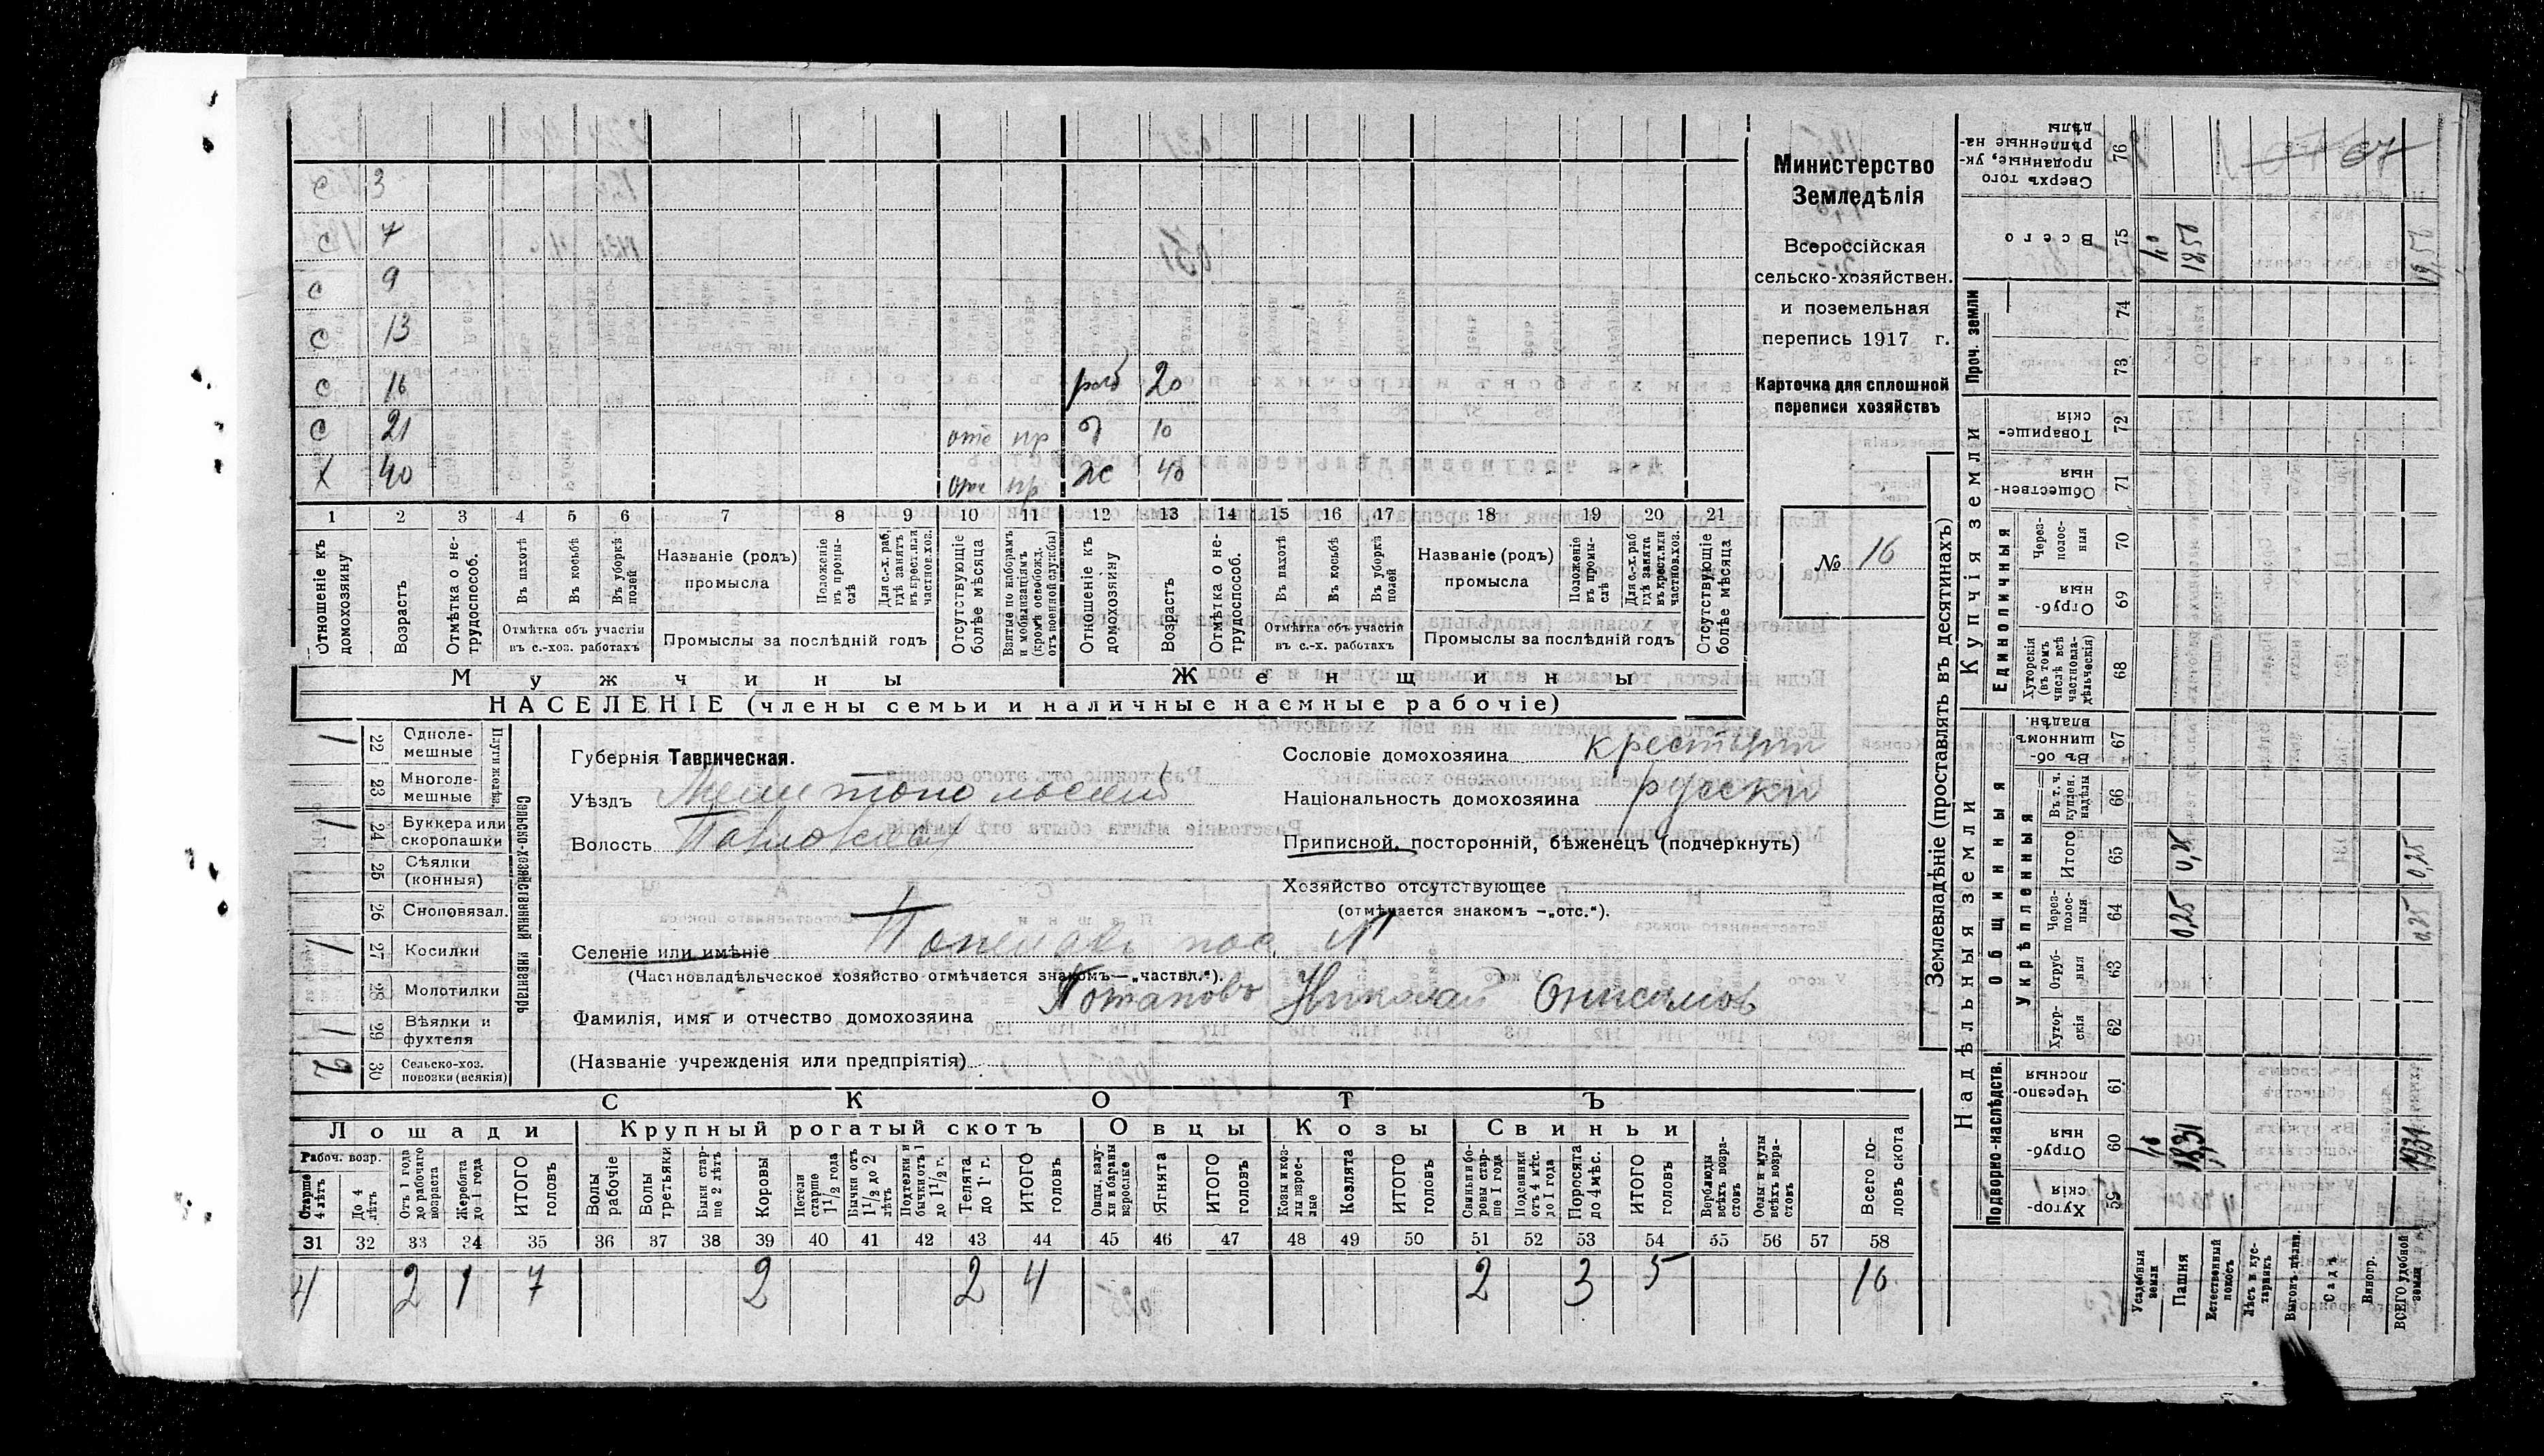 С 3
С 7
С 9
С 13
С 16 раб 20
С 21 отс пр д 10
Х 40 отс пр ж 40
1 2 3 4 5 6 7 8 9 10 11 12 13 14 15 16 17 18 19 20 21
Отношеніе къ домохозяину
Возрастъ
Отмѣтка о нетрудоспособ.
Въ пахотѣ
Въ косьбѣ
Въ уборкѣ полей
Отмѣтка объ участіи въ с.-хоз. работахъ
Названіе (родъ) промысла
Положеніе въ промыслѣ
Для с.-х. раб. гдѣ занятъ въ крест. или частнов. хоз.
Промыслы за послѣдній годъ
Отсутствующіе болѣе мѣсяца
Взятые по наборамъ и мобилизаціямъ (кромѣ освобожд. отъ военной службы)
Отношеніе къ домохозяину
Возрастъ
Отмѣтка о нетрудоспособ.
Въ пахотѣ
Въ косьбѣ
Въ уборкѣ полей
Отмѣтка объ участіи въ с.-х. работахъ
Названіе (родъ) промысла
Положеніе въ промыслѣ
Для с.-х. раб. гдѣ занята въ крест. или частнов. хоз.
Промыслы за послѣдній годъ
Отсутствующіе болѣе мѣсяца
Мужчины Женщины
НАСЕЛЕНІЕ (члены семьи и наличные наемные рабочіе)
Министерство
Земледѣлія
Всероссійская
сельско-хозяйствен.
и поземельная
перепись 1917 г.
Карточка для сплошной
переписи хозяйствъ
№ 16
Сельско-хозяйственный инвентарь
1 22 Одноле-мешные
23 Многоле-мешные
1 24 Буккера или скоропашки
25 Сѣялки (конныя)
26 Сноповязал.
1 27 Косилки
28 Молотилки
1 29 Вѣялки и фухтеля
2 30 Сельско-хоз. повозки (всякія)
Губернія Таврическая.
Уѣздъ Мелитопольскій
Волость Павловская
Сословіе домохозяина крестьян
Національность домохозяина русскі
Приписной, посторонній, бѣженецъ (подчеркнуть)
Хозяйство отсутствующее
(отмѣчается знакомъ —„отс.“).
Селеніе или имѣніе
(Частновладѣльческое хозяйство отмѣчается знакомъ—„частвл.“).
Фамилія, имя и отчество домохозяина Потаповъ Николай Онисимов
(Названіе учрежденія или предпріятія)
СКОТЪ
Лошади Крупный рогатый скотъ Овцы Козы Свиньи
Рабоч. возр.
Старше 4 лѣтъ
До 4 лѣтъ
Отъ 1 года до рабочаго возраста
Жеребята до 1 года
ИТОГО головъ
Волы рабочіе
Волы третьяки
Быки старше 2 лѣтъ
Коровы
Нетели старше 1½ года
Бычки отъ 1½ до 2 лѣтъ
Подтелки и бычки отъ 1 до 1½ г.
Телята до 1 г.
ИТОГО головъ
Овцы, валухи и бараны взрослые
Ягнята
ИТОГО головъ
Козы и козлы взрослые
Козлята
ИТОГО головъ
Свиньи и боровы старше 1 года
Подсвинки отъ 4 мѣс. до 1 года
Поросята до 4 мѣс.
ИТОГО головъ
Верблюды всѣхъ возрастовъ
Ослы и мулы всѣхъ возрастовъ
Всего головъ скота
31 32 33 34 35 36 37 38 39 40 41 42 43 44 45 46 47 48 49 50 51 52 53 54 55 56 57 58
4 2 1 7 2 2 4 2 3 5 16
Землевладѣніе (проставлять въ десятинахъ)
Надѣльныя земли
Купчія земли
Проч. земли
Подворно-наслѣдств.
Общинныя
Укрѣпленныя
Единоличныя
Сверхъ того проданные, укрѣпленные надѣлы 76
Всего 75 18,50 19,56
74
73
Товарищескія 72
Общественныя 71
Чрезполосныя 70
Отрубныя 69
Хуторскія (въ томъ числѣ всѣ частновладѣльческія) 68
Въ общинномъ владѣн. 67
Въ т. ч. куплен. надѣлы 66
Итого 65 0,25 0,25
Чрезполосныя 64 0,25 0,25
Отрубныя 63
Хуторскія 62
Черезполосныя 61
Отрубныя 60 1931
Хуторскія 59
Усадебныя земли
Пашня
Естественный покосъ
Лѣсъ и кустарникъ
Выгонъ, цѣлин.
Садъ
Виногр.
ВСЕГО удобной земли
67